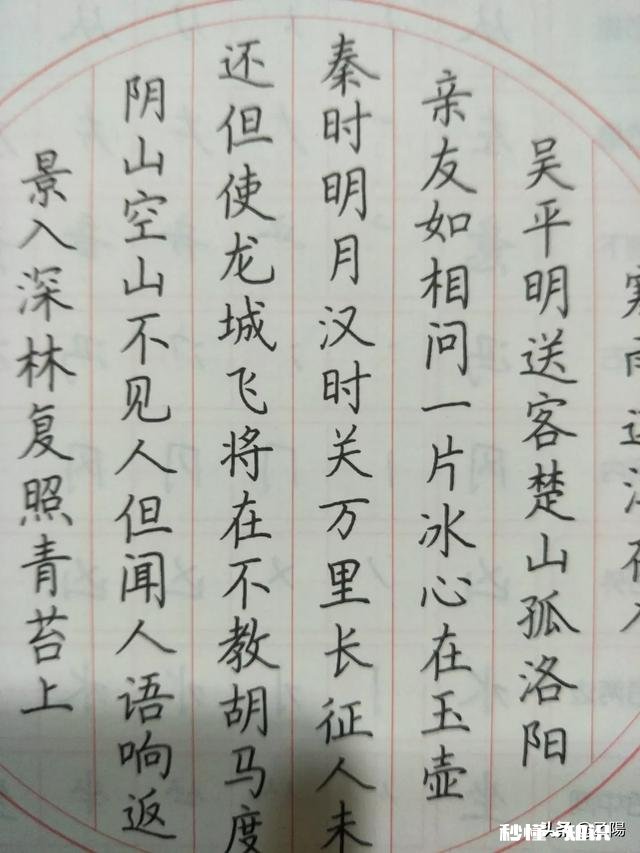 吴平明送客楚山孤洛阳
亲友如相问一片冰心在玉壶
秦时明月汉时关万里长征人未
还但使龙城飞将在不教胡马度
阴山空山不见人但闻人语响返
景入深林复照青苔上